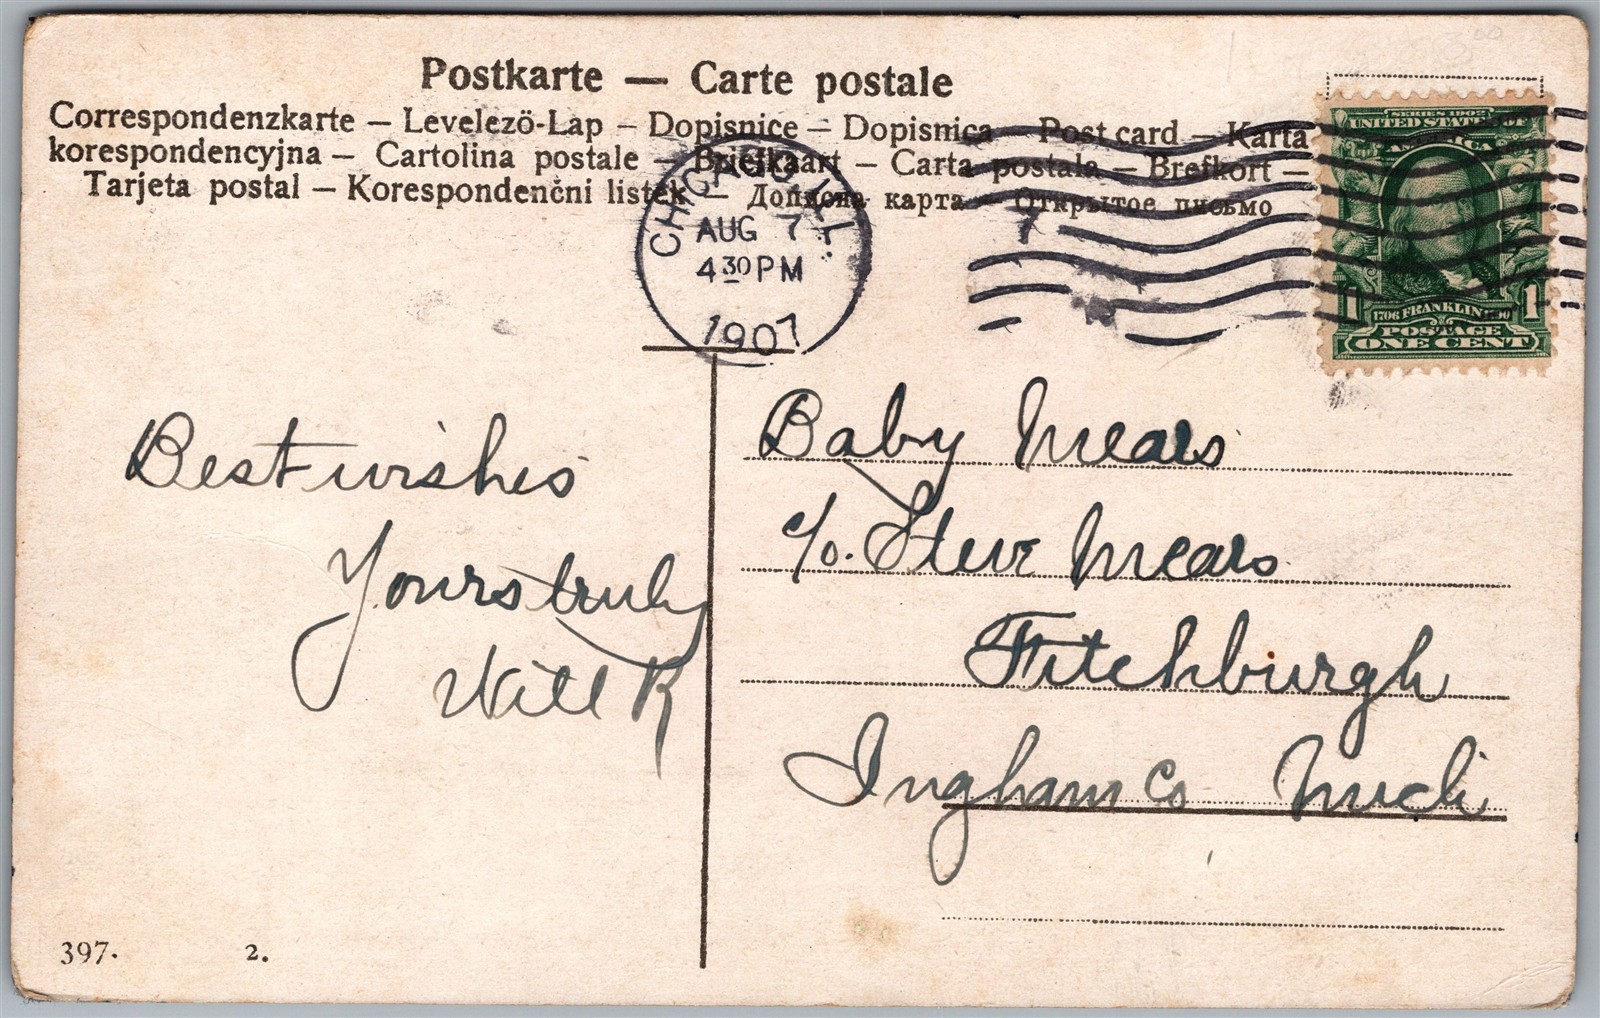 Postkarte — Carte postale
Correspondenzkarte – Levelezö-Lap – Dopisnice – Dopisnica – Post card – Karta
korespondencyjna – Cartolina postale – Briefkaart – Carta postala – Brefkort –
Tarjeta postal – Korespondenčni listek – Дописна карта – Открытое письмо
CHICAGO, ILL.
AUG 7
4 30 PM
1907
7
SERIES 1902
UNITED STATES OF
AMERICA
1 1
1706 FRANKLIN 1790
POSTAGE
ONE CENT
Best wishes
Yours truly
Will R
Baby Mears
c/o. Steve Mears
Fitchburgh
Ingham Co Mich
397. 2.